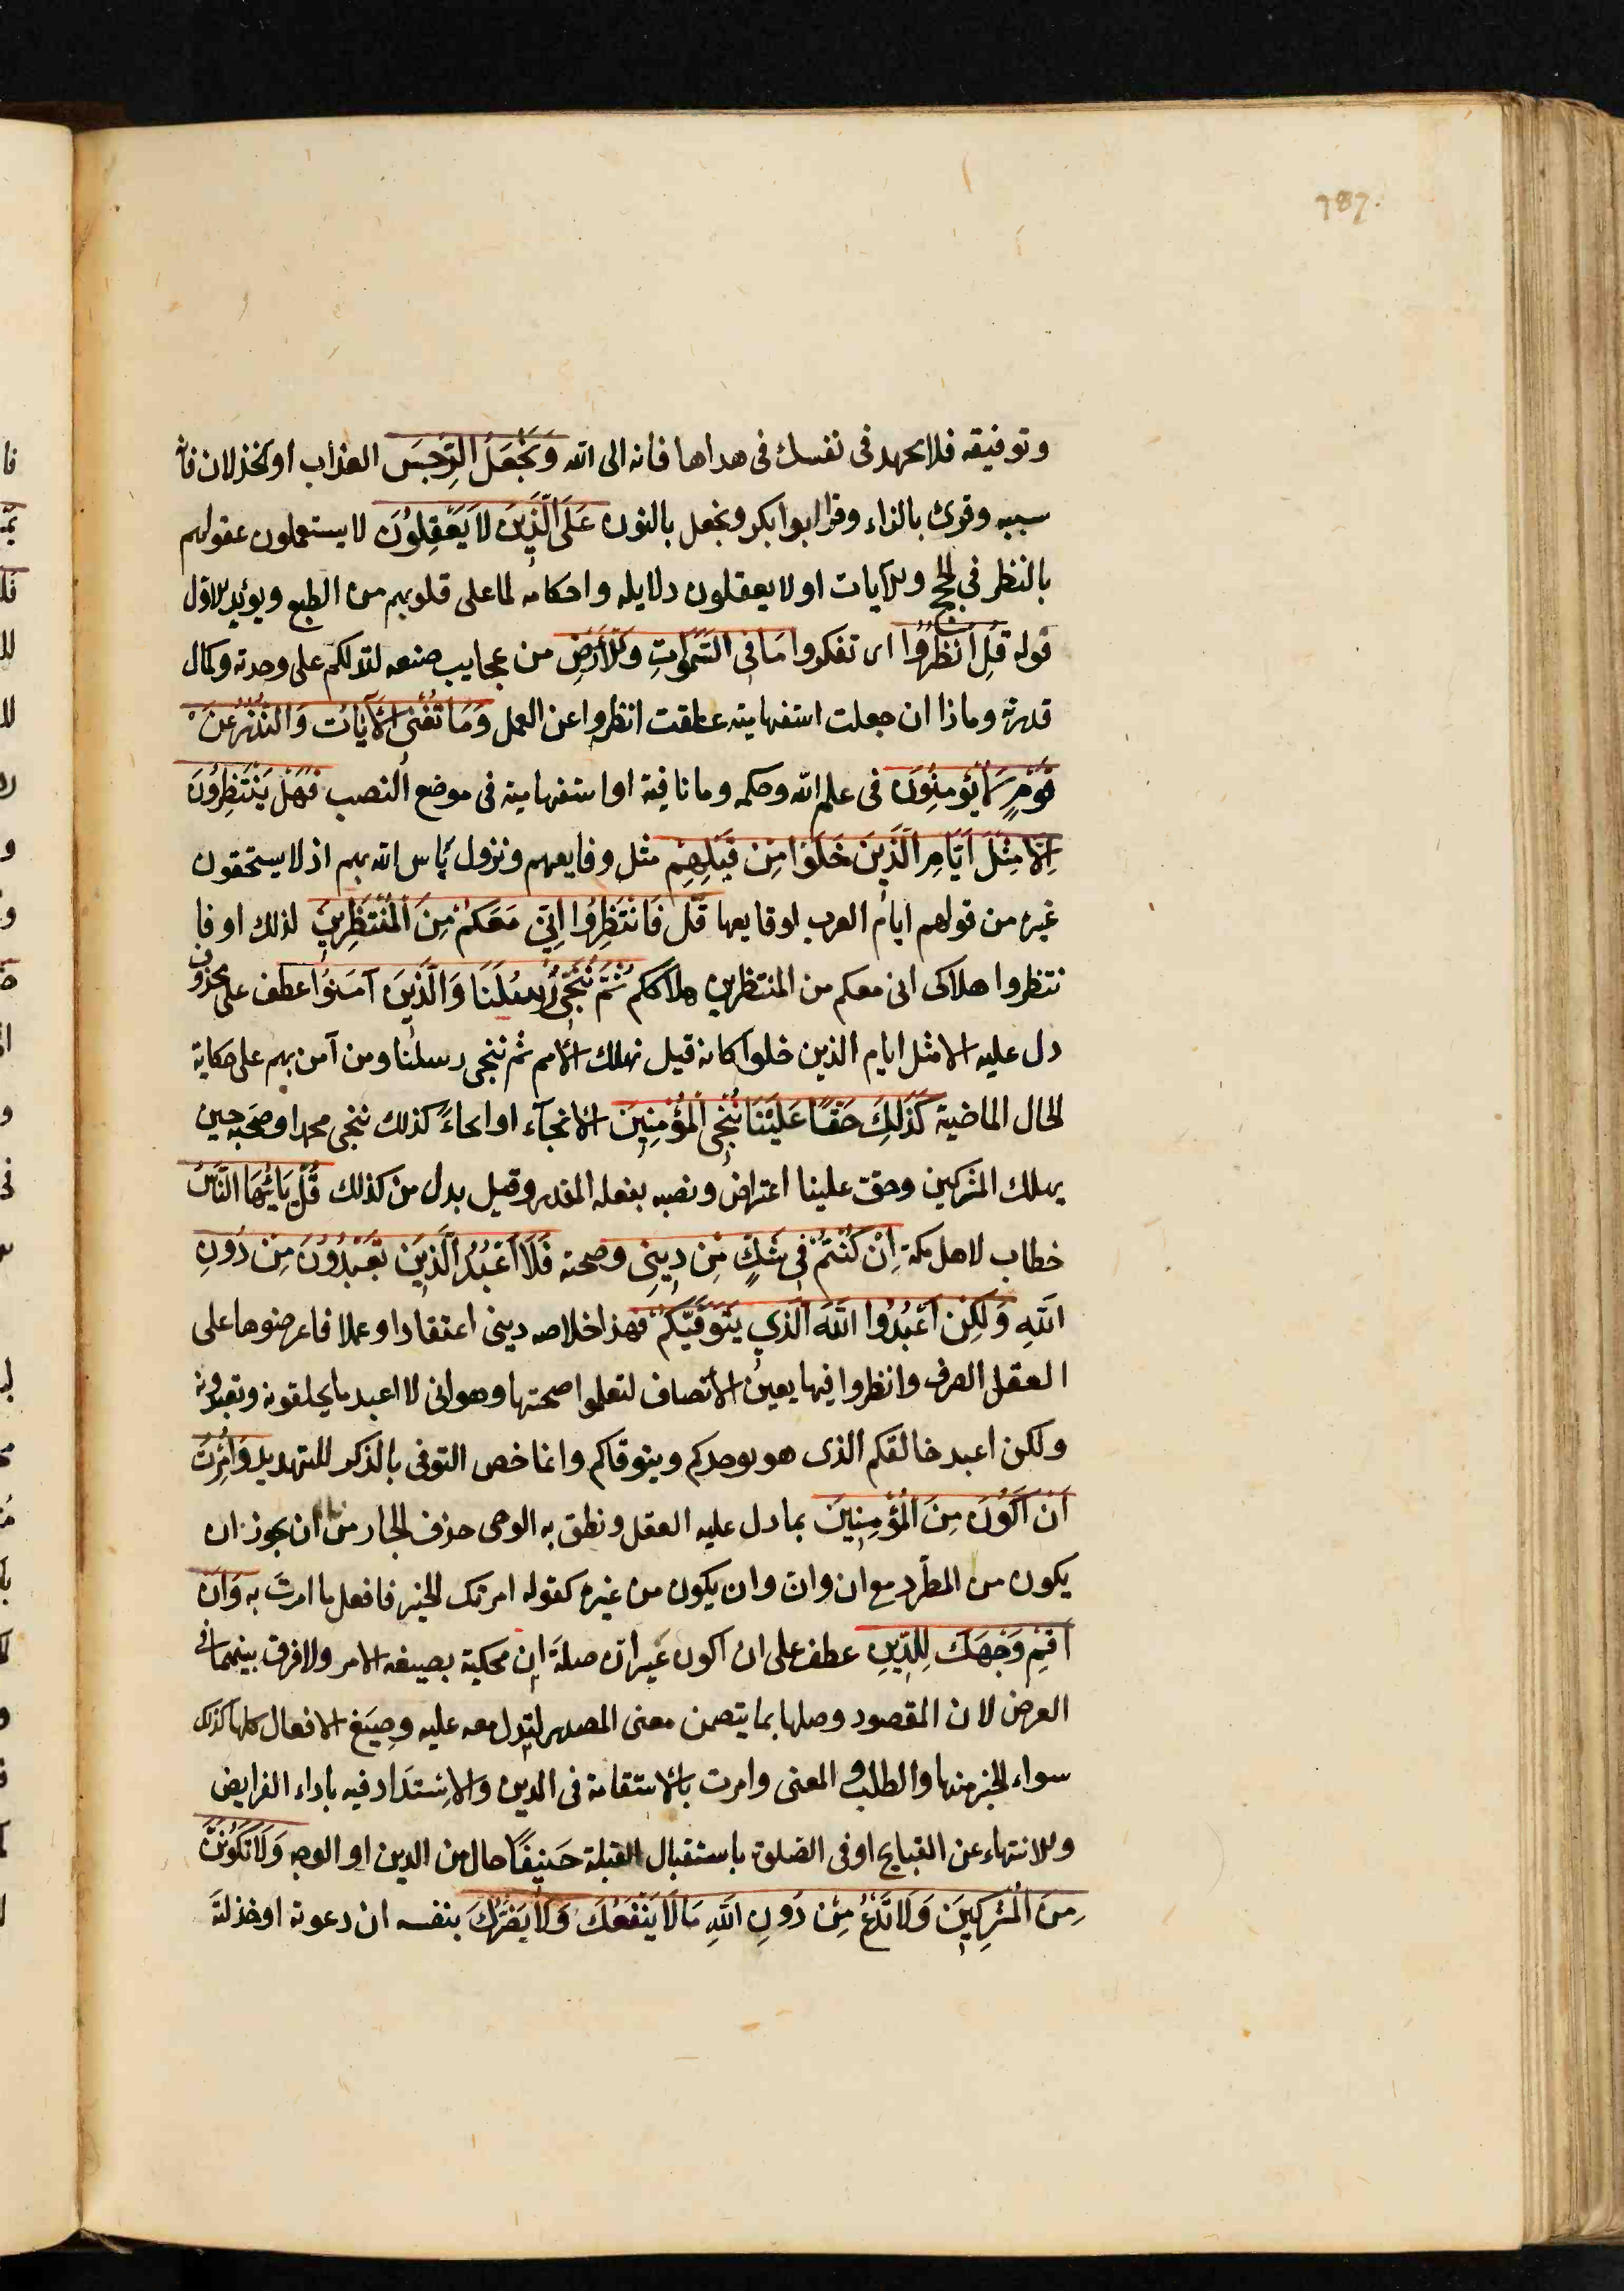 787.
وتوفيقه فلا تجهد فى نفسك فى هداها فانه الى الله وَيَجْعَلُ الرِّجْسَ العذاب او الخذلان فانه
سببه وقرئ بالزاء وقرا ابوا بكر ونجعل بالنون عَلَى الَّذِينَ لَا يَعْقِلُونَ لا يستعملون عقولهم
بالنظر فى الحجج والآيات او لا يعقلون دلايله واحكامه لما على قلوبهم من الطبع ويؤيد الاول
قوله قُلِ انْظُرُوا اى تفكروا مَا فِى السَّمٰوَاتِ وَالْأَرْضِ من عجايب صنعه لتدلكم على وحدته وكمال
قدرته وماذا ان جعلت استفهامية علقت انظروا عن العمل وَمَا تُغْنِى الْآيَاتُ وَالنُّذُرُ عَنْ
قَوْمٍ لَا يُؤْمِنُونَ فى علم الله وحكمه وما نافية او استفهامية فى موضع النصب فَهَلْ يَنْتَظِرُونَ
اِلَّا مِثْلَ اَيَّامِ الَّذِينَ خَلَوْا مِنْ قَبْلِهِمْ مثل وقايعهم ونزول بأس الله بهم اذ لا يستحقون
غيره من قولهم ايام العرب لوقايعها قُلْ فَانْتَظِرُوا اِنِّى مَعَكُمْ مِنَ الْمُنْتَظِرِينَ لذلك او فا
نتظروا هلاكى انى معكم من المنتظرين هلاككم ثُمَّ نُنَجِّى رُسُلَنَا وَالَّذِينَ آمَنُوا عطف على محذوف
دل عليه الا مثل ايام الذين خلوا كانه قيل نهلك الأمم ثم ننجى رسلنا ومن آمن بهم على حكاية
الحال الماضية كَذٰلِكَ حَقًّا عَلَيْنَا نُنْجِى الْمُؤْمِنِينَ الأنجآء او انجاءً كذلك ننجى محمدا وصحبه حين
يهلك المشركين وحق علينا اعتراض ونصبه بفعله المقدر وقيل بدل من كذلك قُلْ يَا أَيُّهَا النَّاسُ
خطاب لاهل مكة اِنْ كُنْتُمْ فِى شَكٍّ مِنْ دِينِى وصحته فَلَا اَعْبُدُ الَّذِينَ تَعْبُدُونَ مِنْ دُونِ
اللَّهِ وَلٰكِنْ اَعْبُدُوا اللَّهَ الَّذِى يَتَوَفّٰيكُمْ فهذا خلاصه دينى اعتقادا وعملا فاعرضوها على
العقل الصرف وانظروا فيها بعين الأنصاف لتعلموا صحتها وهو انى لا اعبد ما يخلقونه وتعبدونه
ولكن اعبد خالقكم الذى هو يوجدكم ويتوفاكم وانما خص التوفى بالذكر للتهديد وَاُمِرْتُ
اَنْ اَكُونَ مِنَ الْمُؤْمِنِينَ بما دل عليه العقل ونطق به الوحى حذف الجار من ان يجوز ان
يكون من المطّرد مع ان وانّ وان يكون من غيره كقوله امرتك الخير فافعل ما امرتَ به وَاَنْ
اَقِمْ وَجْهَكَ لِلدِّينِ عطف على ان اكون غير انّ صلة ان محكية بصيغه الامر ولا فرق بينهما فى
الغرض لان المقصود وصلها بما يتضمن معنى المصدر ليدل معه عليه وصيغ الافعال كلها كذلك
سواء الخبر منها والطلب والمعنى وامرت بالأستقامة فى الدين والاِستدَاد فيه باداء الفرايض
والانتهاء عن القبايح او فى الصلوة باستقبال القبلة حَنِيفًا حال من الدين او الوجه وَلَا تَكُونَنَّ
مِنَ الْمُشْرِكِينَ وَلَا تَدْعُ مِنْ دُونِ اللَّهِ مَا لَا يَنْفَعُكَ وَلَا يَضُرُّكَ بنفسه ان دعوته او خذلته